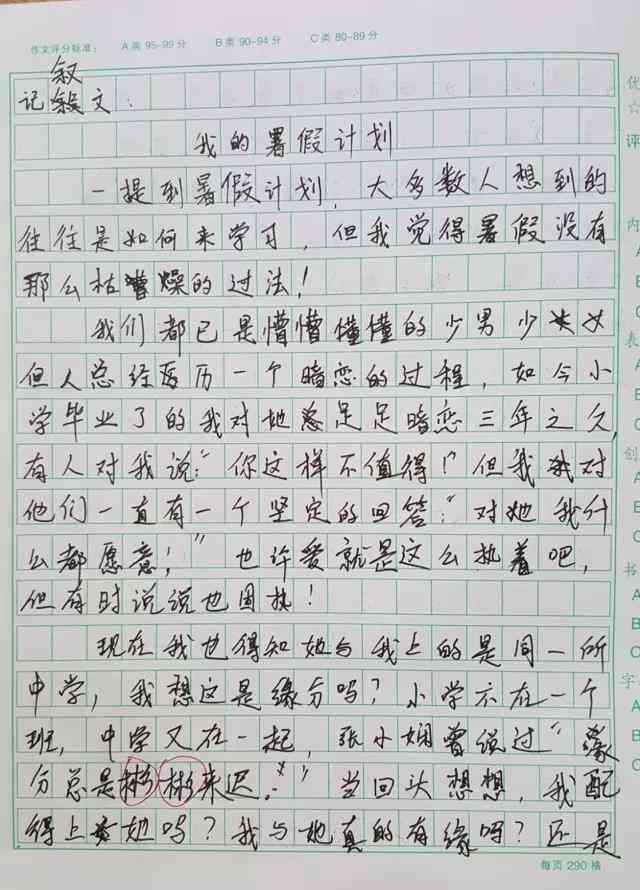 作文评分标准： A类 95-99分 B类 90-94分 C类 80-89分
叙
记叙文：
我的暑假计划
一提到暑假计划，大多数人想到的
往往是如何来学习，但我觉得暑假没有
那么枯燥的过法！
我们都已是懵懵懂懂的少男少女
但人总经历一个暗恋的过程，如今小
学毕业了的我对她足足暗恋三年之久，
有人对我说：“你这样不值得！”但我对
他们一直有一个坚定的回答：“对她我什
么都愿意！”也许爱就是这么执着吧，
但有时说说也固执！
现在我也得知她与我上的是同一所
中学，我想这是缘分吗？小学不在一个
班，中学又在一起，张小娴曾说过“缘
分总是彬彬来迟。”当回头想想，我配
得上她吗？我与她真的有缘吗？还是
每页290格
优
☆
评
内
A
B
C
表
A
B
C
创
A
B
C
书
A
B
C
字
A
B
C